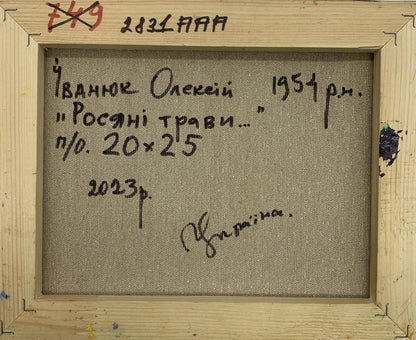 749 2831AAA
Іванюк Олексій 1954 р.н.
„Росяні трави..."
п/о. 20×25
2023р.
Україна.